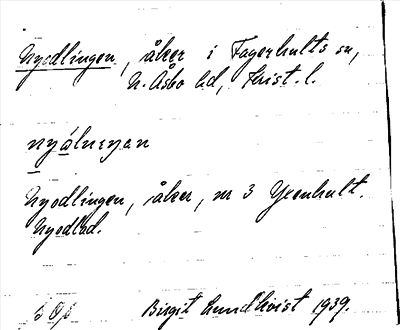 Nyodlingen, åker i Fagerhults sn,
N. Åsbo hd, Krist. l.
nyálniŋan
Nyodlingen, åker, nr 3 Yxenhult.
Nyodlad.
Birgit Lundkvist 1939.